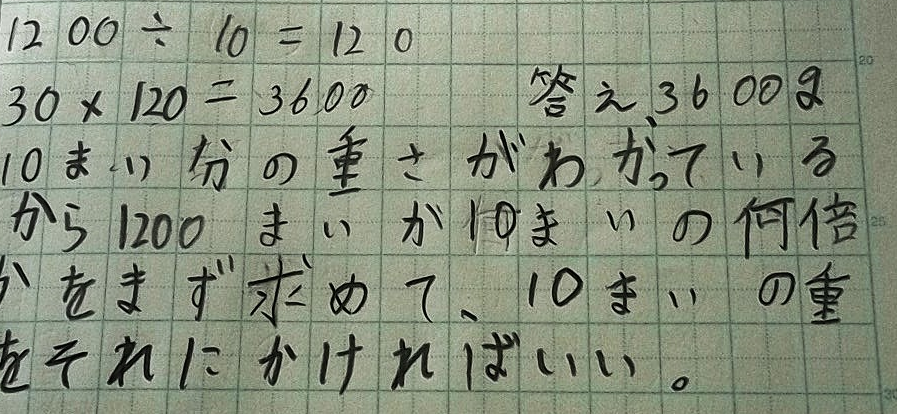 1200÷10=120
30×120=3600 答え、3600g
10まい分の重さがわかっている
から1200まいが10まいの何倍
かをまず求めて、10まいの重
をそれにかければいい。